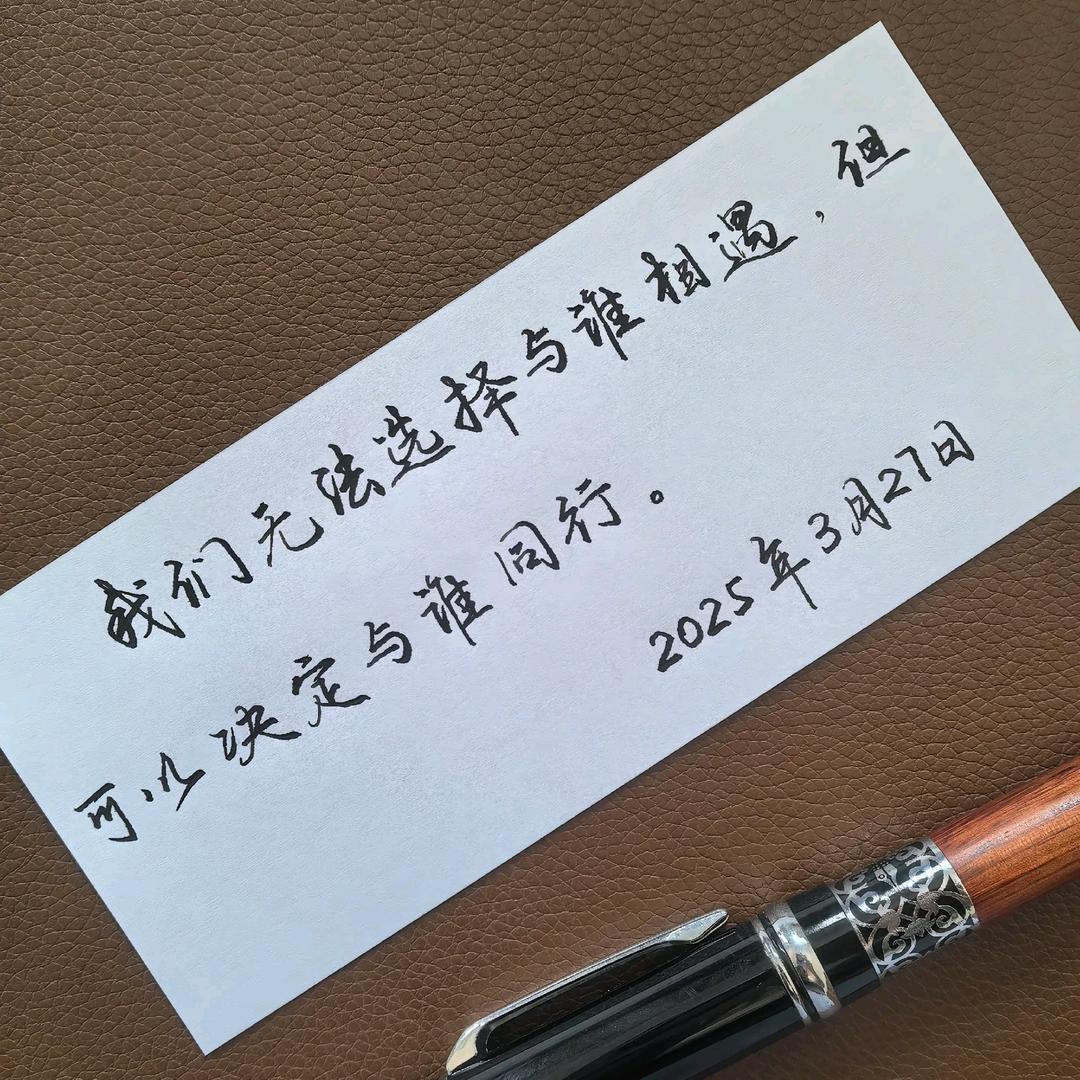 我们无法选择与谁相遇，但
可以决定与谁同行。
2025年3月27日